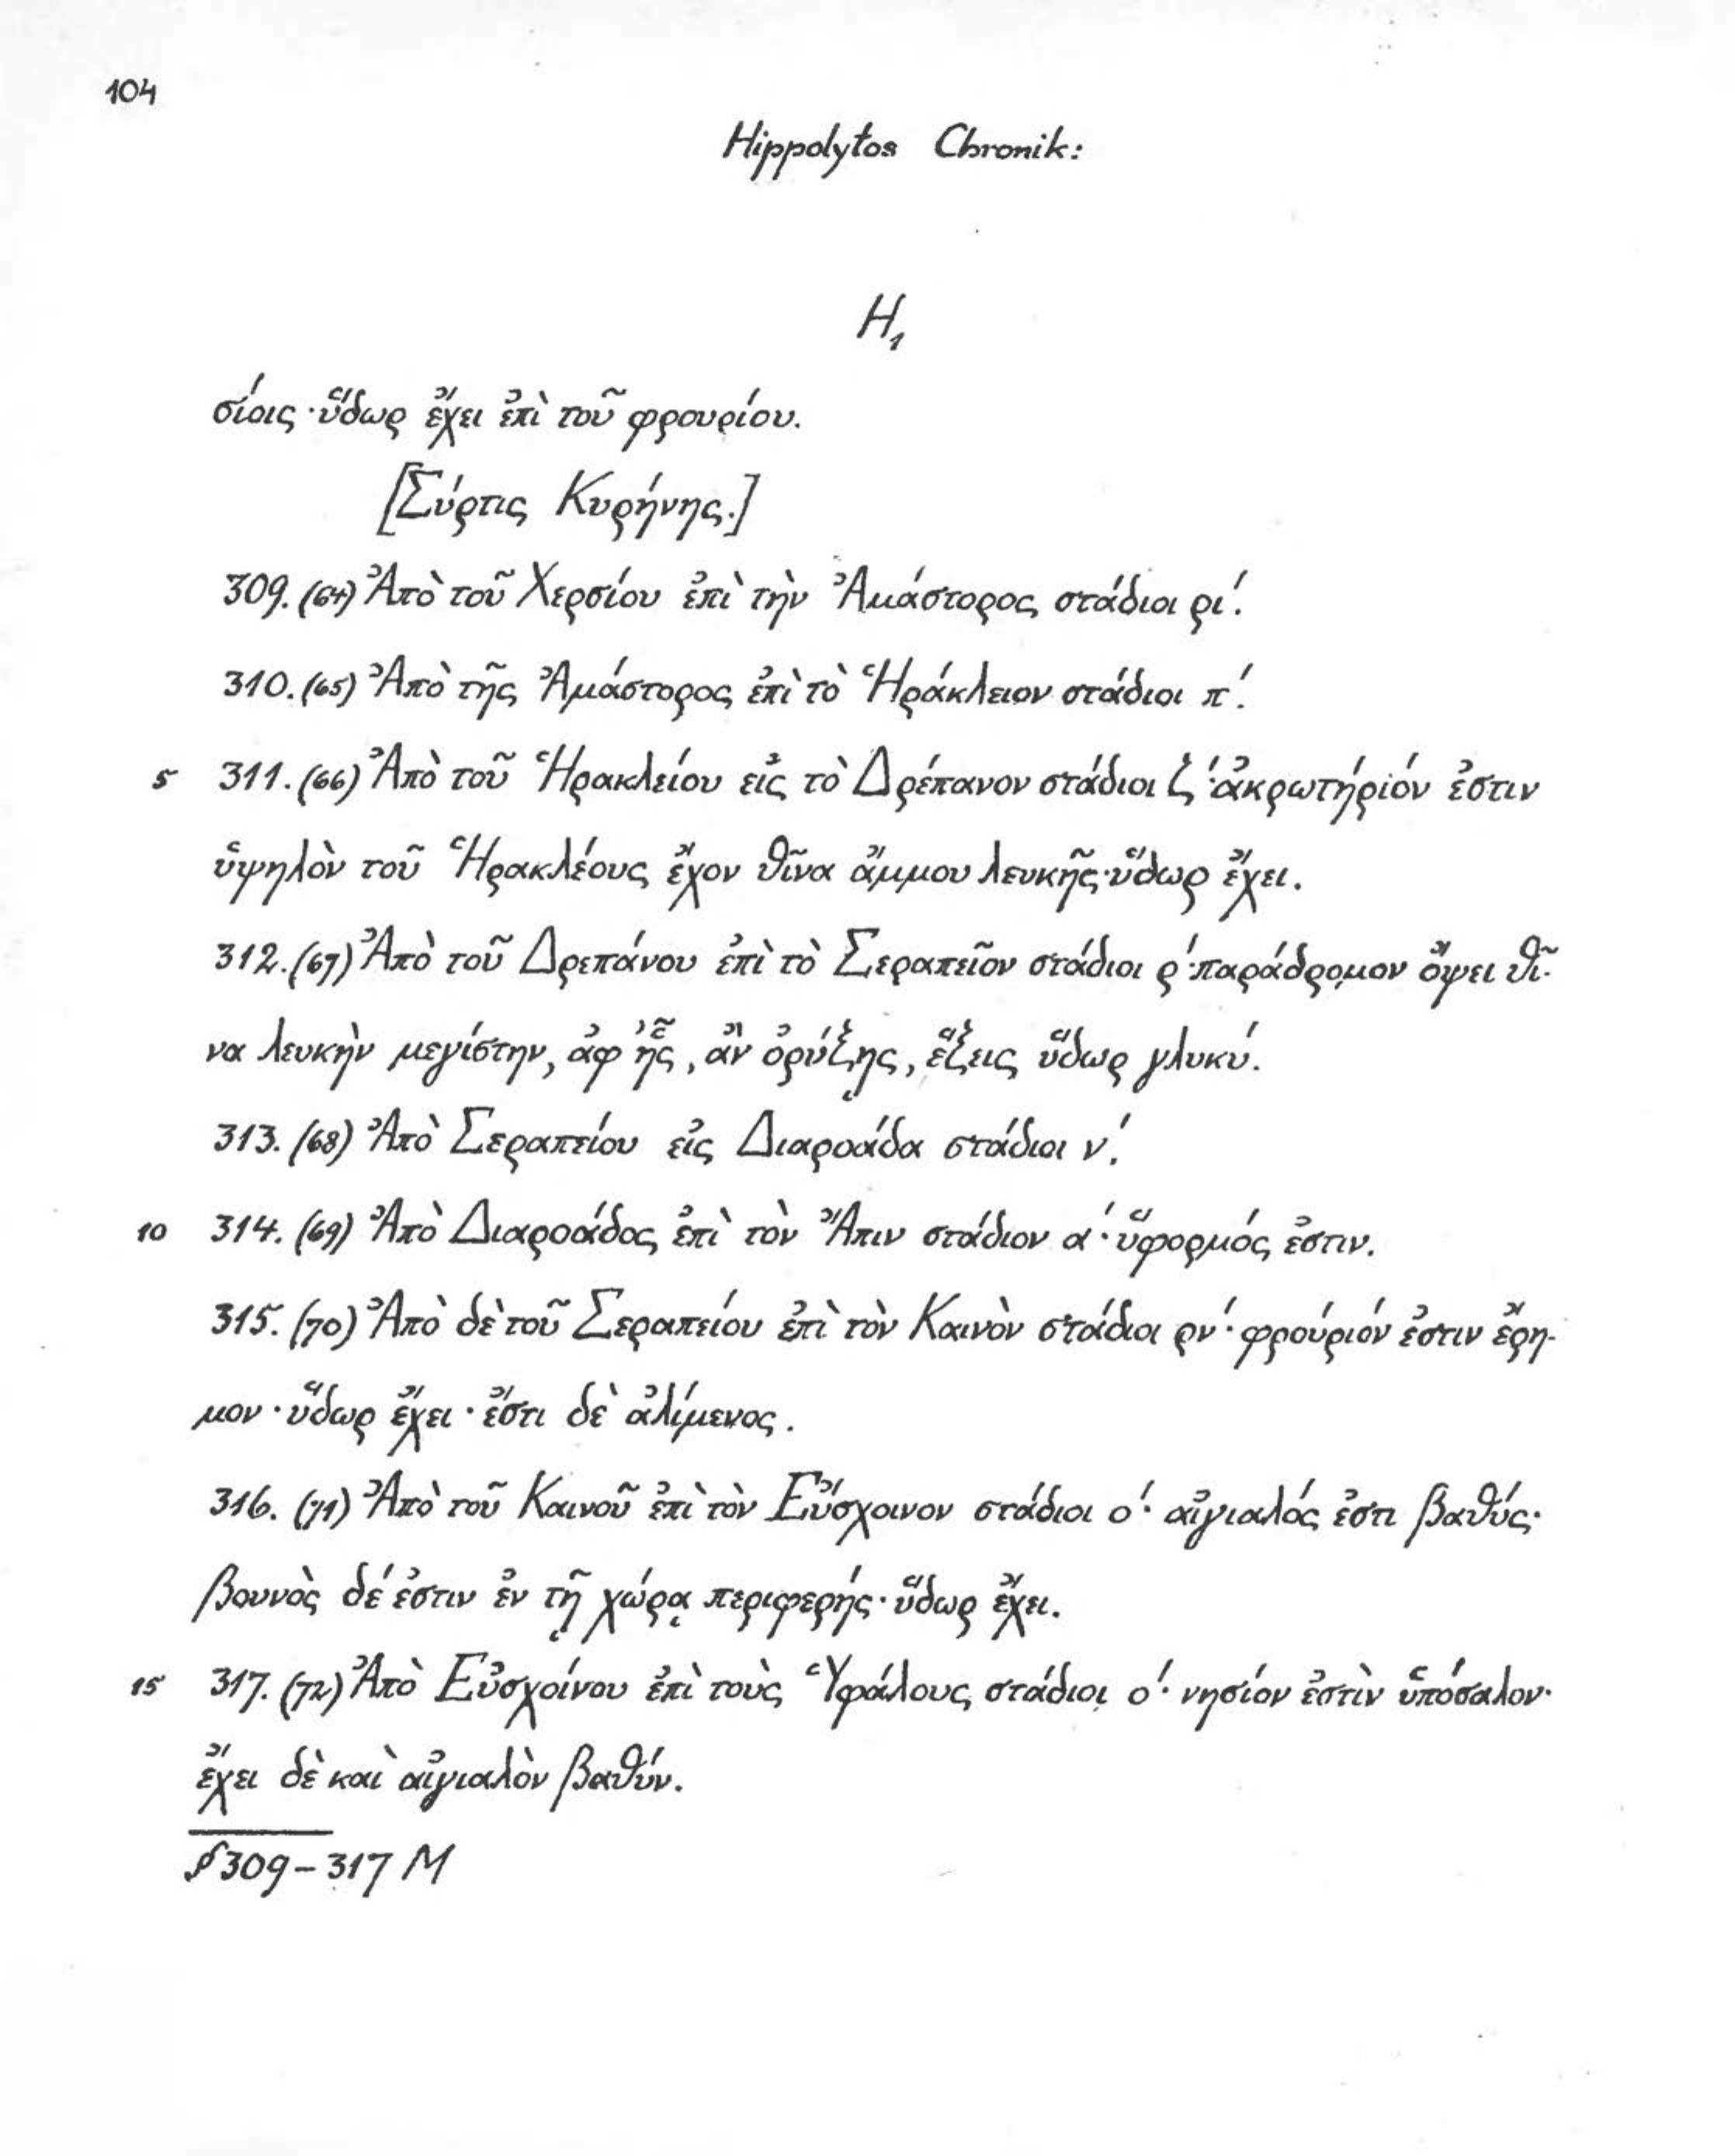 104
Hippolytos Chronik:
H₁
σίοις · ὕδωρ ἔχει ἐπὶ τοῦ φρουρίου.
[Σύρτις Κυρήνης.]
309. (64) Ἀπὸ τοῦ Χερσίου ἐπὶ τὴν Ἀμάστορος στάδιοι ρι΄.
310. (65) Ἀπὸ τῆς Ἀμάστορος ἐπὶ τὸ Ἡράκλειον στάδιοι π΄.
5 311. (66) Ἀπὸ τοῦ Ἡρακλείου εἰς τὸ Δρέπανον στάδιοι ζ΄· ἀκρωτήριόν ἐστιν
ὑψηλὸν τοῦ Ἡρακλέους ἔχον θῖνα ἄμμου λευκῆς· ὕδωρ ἔχει.
312. (67) Ἀπὸ τοῦ Δρεπάνου ἐπὶ τὸ Σεραπεῖον στάδιοι ρ΄· παράδρομον ὄψει θῖ-
να λευκὴν μεγίστην, ἀφ’ ἧς, ἂν ὀρύξῃς, ἕξεις ὕδωρ γλυκύ.
313. (68) Ἀπὸ Σεραπείου εἰς Διαροάδα στάδιοι ν΄.
10 314. (69) Ἀπὸ Διαροάδος ἐπὶ τὸν Ἄπιν στάδιον α΄· ὕφορμός ἐστιν.
315. (70) Ἀπὸ δὲ τοῦ Σεραπείου ἐπὶ τὸν Καινὸν στάδιοι ρν΄· φρούριόν ἐστιν ἔρη-
μον · ὕδωρ ἔχει · ἔστι δὲ ἀλίμενος.
316. (71) Ἀπὸ τοῦ Καινοῦ ἐπὶ τὸν Εὔσχοινον στάδιοι ο΄· αἰγιαλός ἐστι βαθύς·
βουνὸς δέ ἐστιν ἐν τῇ χώρᾳ περιφερής · ὕδωρ ἔχει.
15 317. (72) Ἀπὸ Εὐσχοίνου ἐπὶ τοὺς Ὑφάλους στάδιοι ο΄· νησίον ἐστὶν ὑπόσαλον·
ἔχει δὲ καὶ αἰγιαλὸν βαθύν.
§ 309–317 M